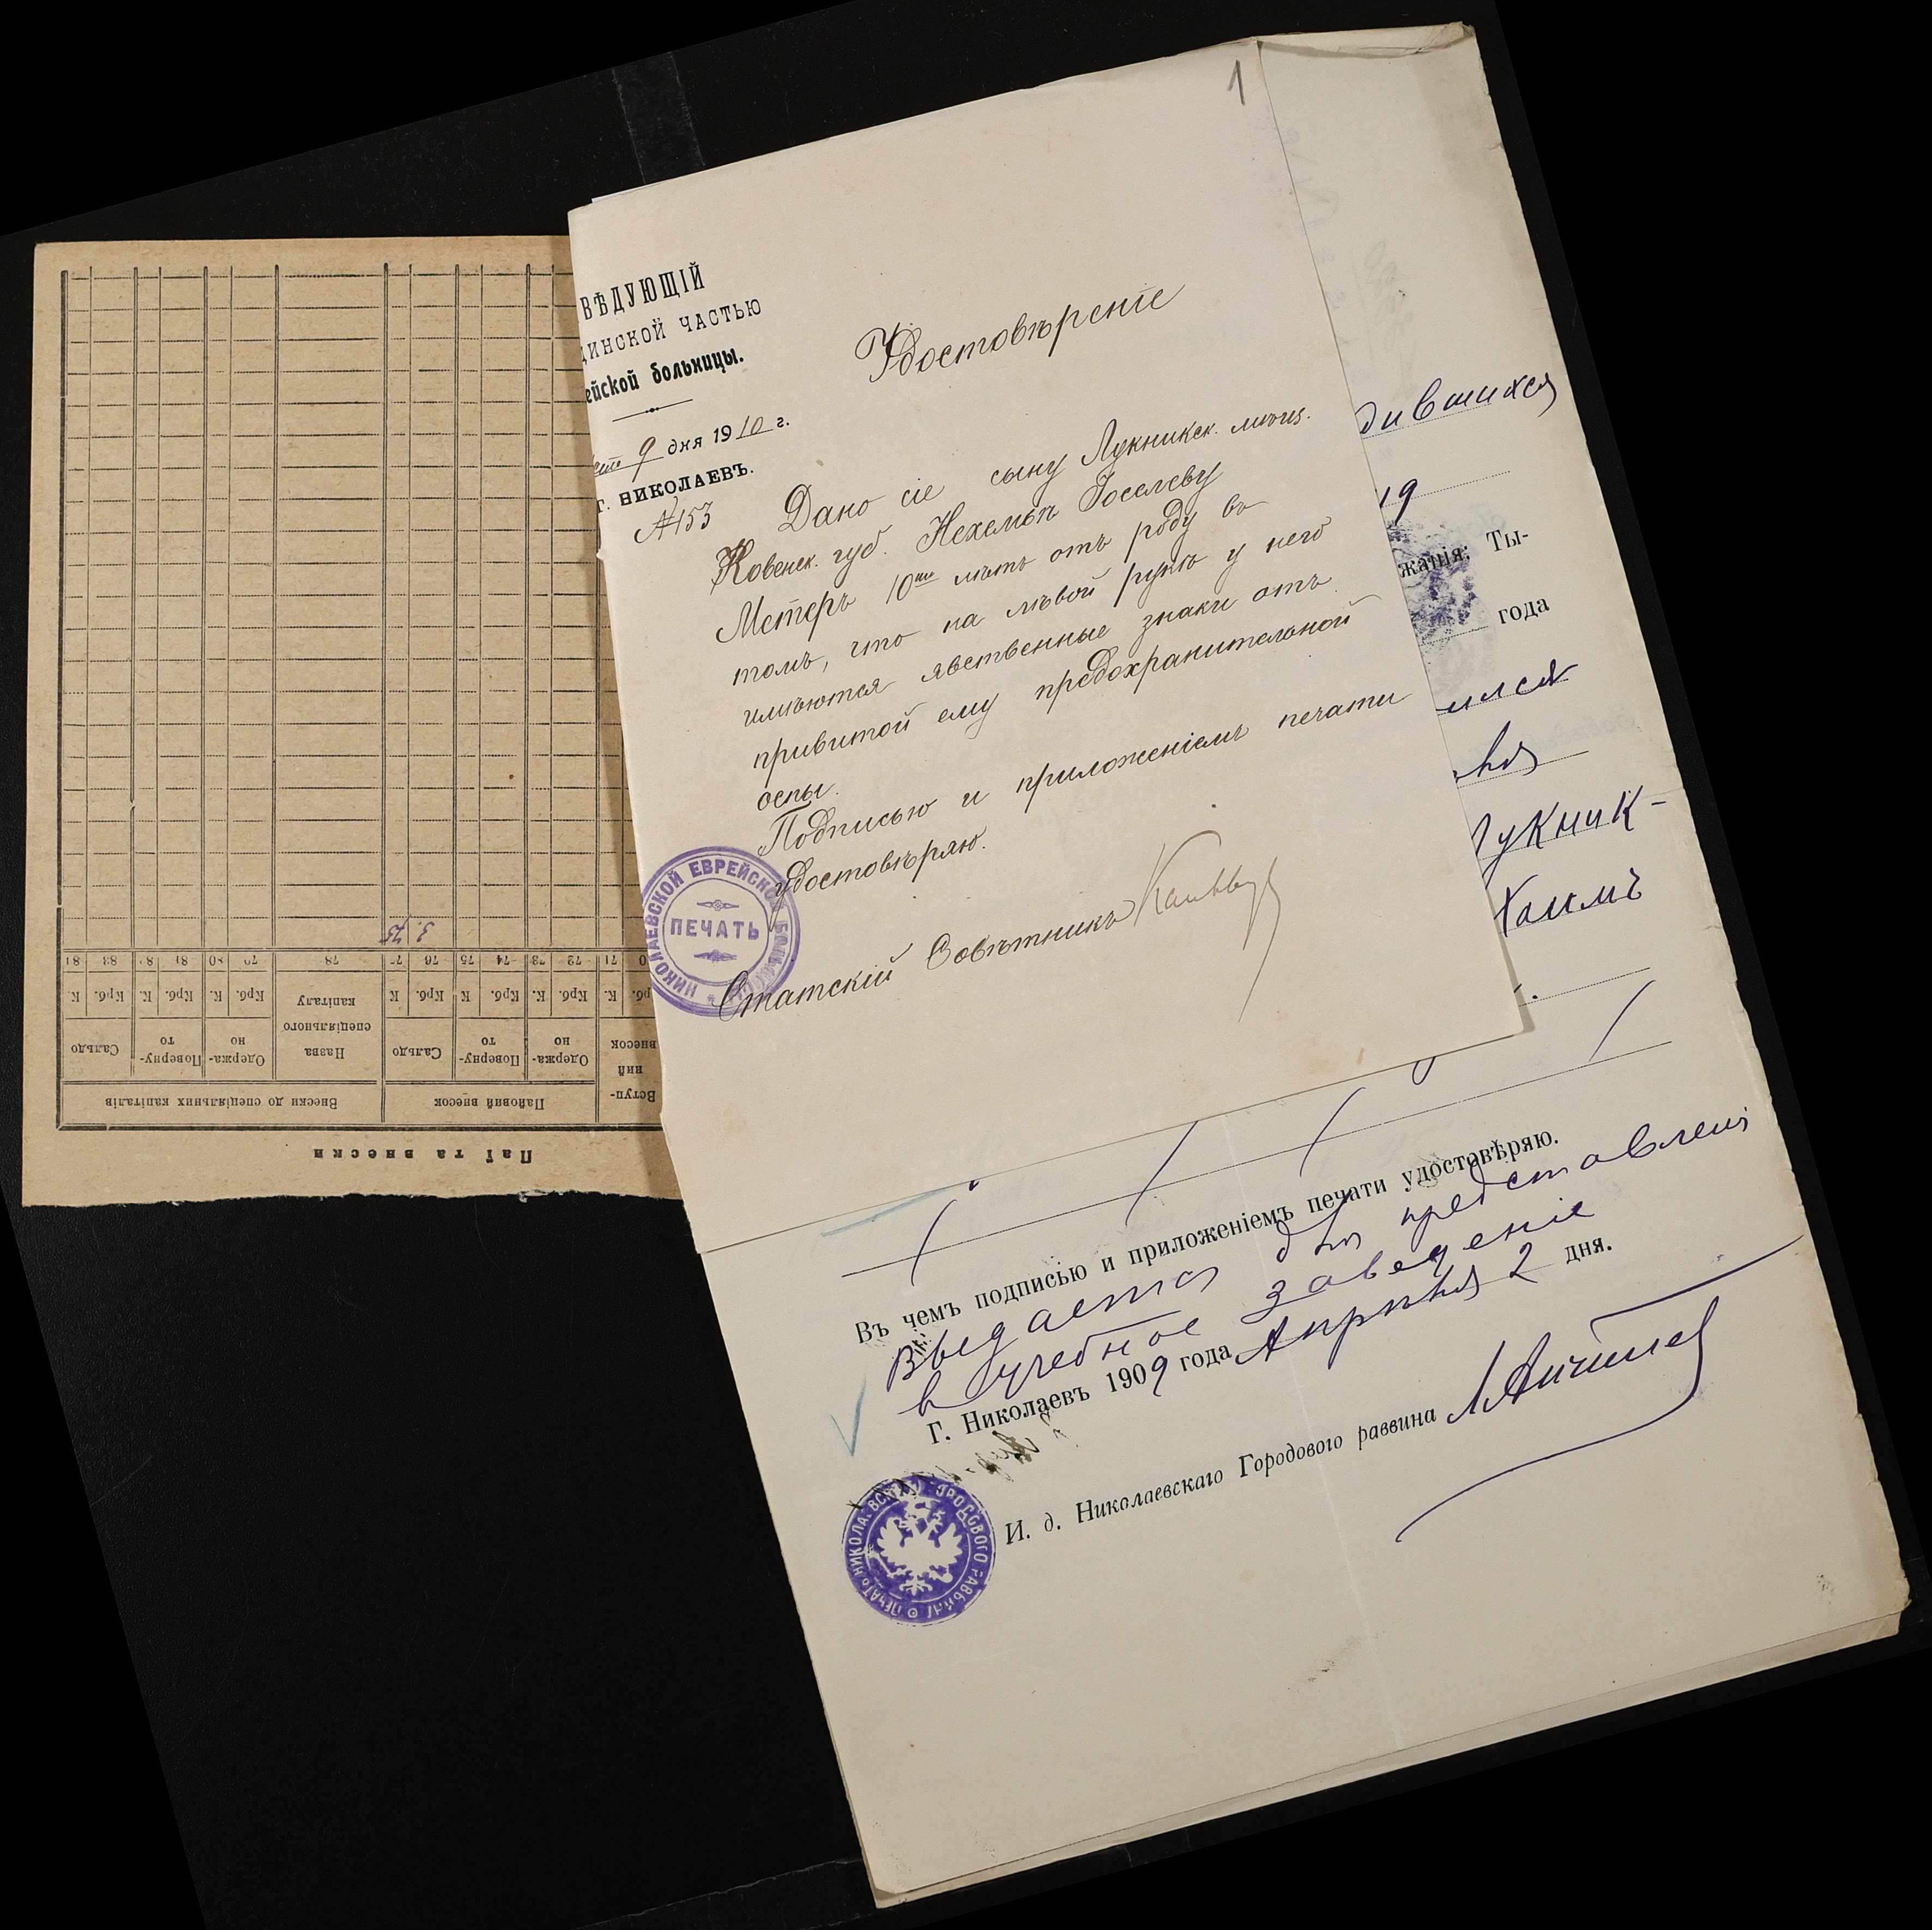 1
ВѢДУЮЩІЙ
ДИНСКОЙ ЧАСТЬЮ
ейской больницы.
9 дня 1910 г.
г. НИКОЛАЕВЪ.
№153
Удостовѣреніе
Дано сіе сыну Лукникск. мѣщ.
Ковенск. губ. Нехемьѣ Іоселеву
Метеръ 10ти лѣтъ отъ роду въ
томъ, что на лѣвой рукѣ у него
имѣются явственные знаки отъ
привитой ему предохранительной
оспы.
Подписью и приложеніемъ печати
удостовѣряю.
Статскій Совѣтникъ
НИКОЛАЕВСКОЙ ЕВРЕЙСКОЙ БОЛЬНИЦЫ
ПЕЧАТЬ
дившихся
19
жанія: Ты-
года
ился
Лукник-
Хаимъ
Въ чемъ подписью и приложеніемъ печати удостовѣряю.
Выдается для представленія
в учебное заведеніе
Г. Николаевъ 1909 года Апрѣля 2 дня.
И. д. Николаевскаго Городового раввина
ПЕЧАТЬ НИКОЛАЕВСКАГО ГОРОДОВОГО РАВВИНА
Паї та внески
Вступ-
ний
внесок
Пайовий внесок
Внески до спеціяльних капіталів
Одержа-
но
Поверну-
то
Сальдо
Назва
спеціяльного
капіталу
Одержа-
но
Поверну-
то
Сальдо
рб. К. Крб. К. Крб. К Крб. К Крб. К Крб. К Крб. К
0 71 72 73 74 75 76 77 78 79 80 81 82 83 84
3. 75